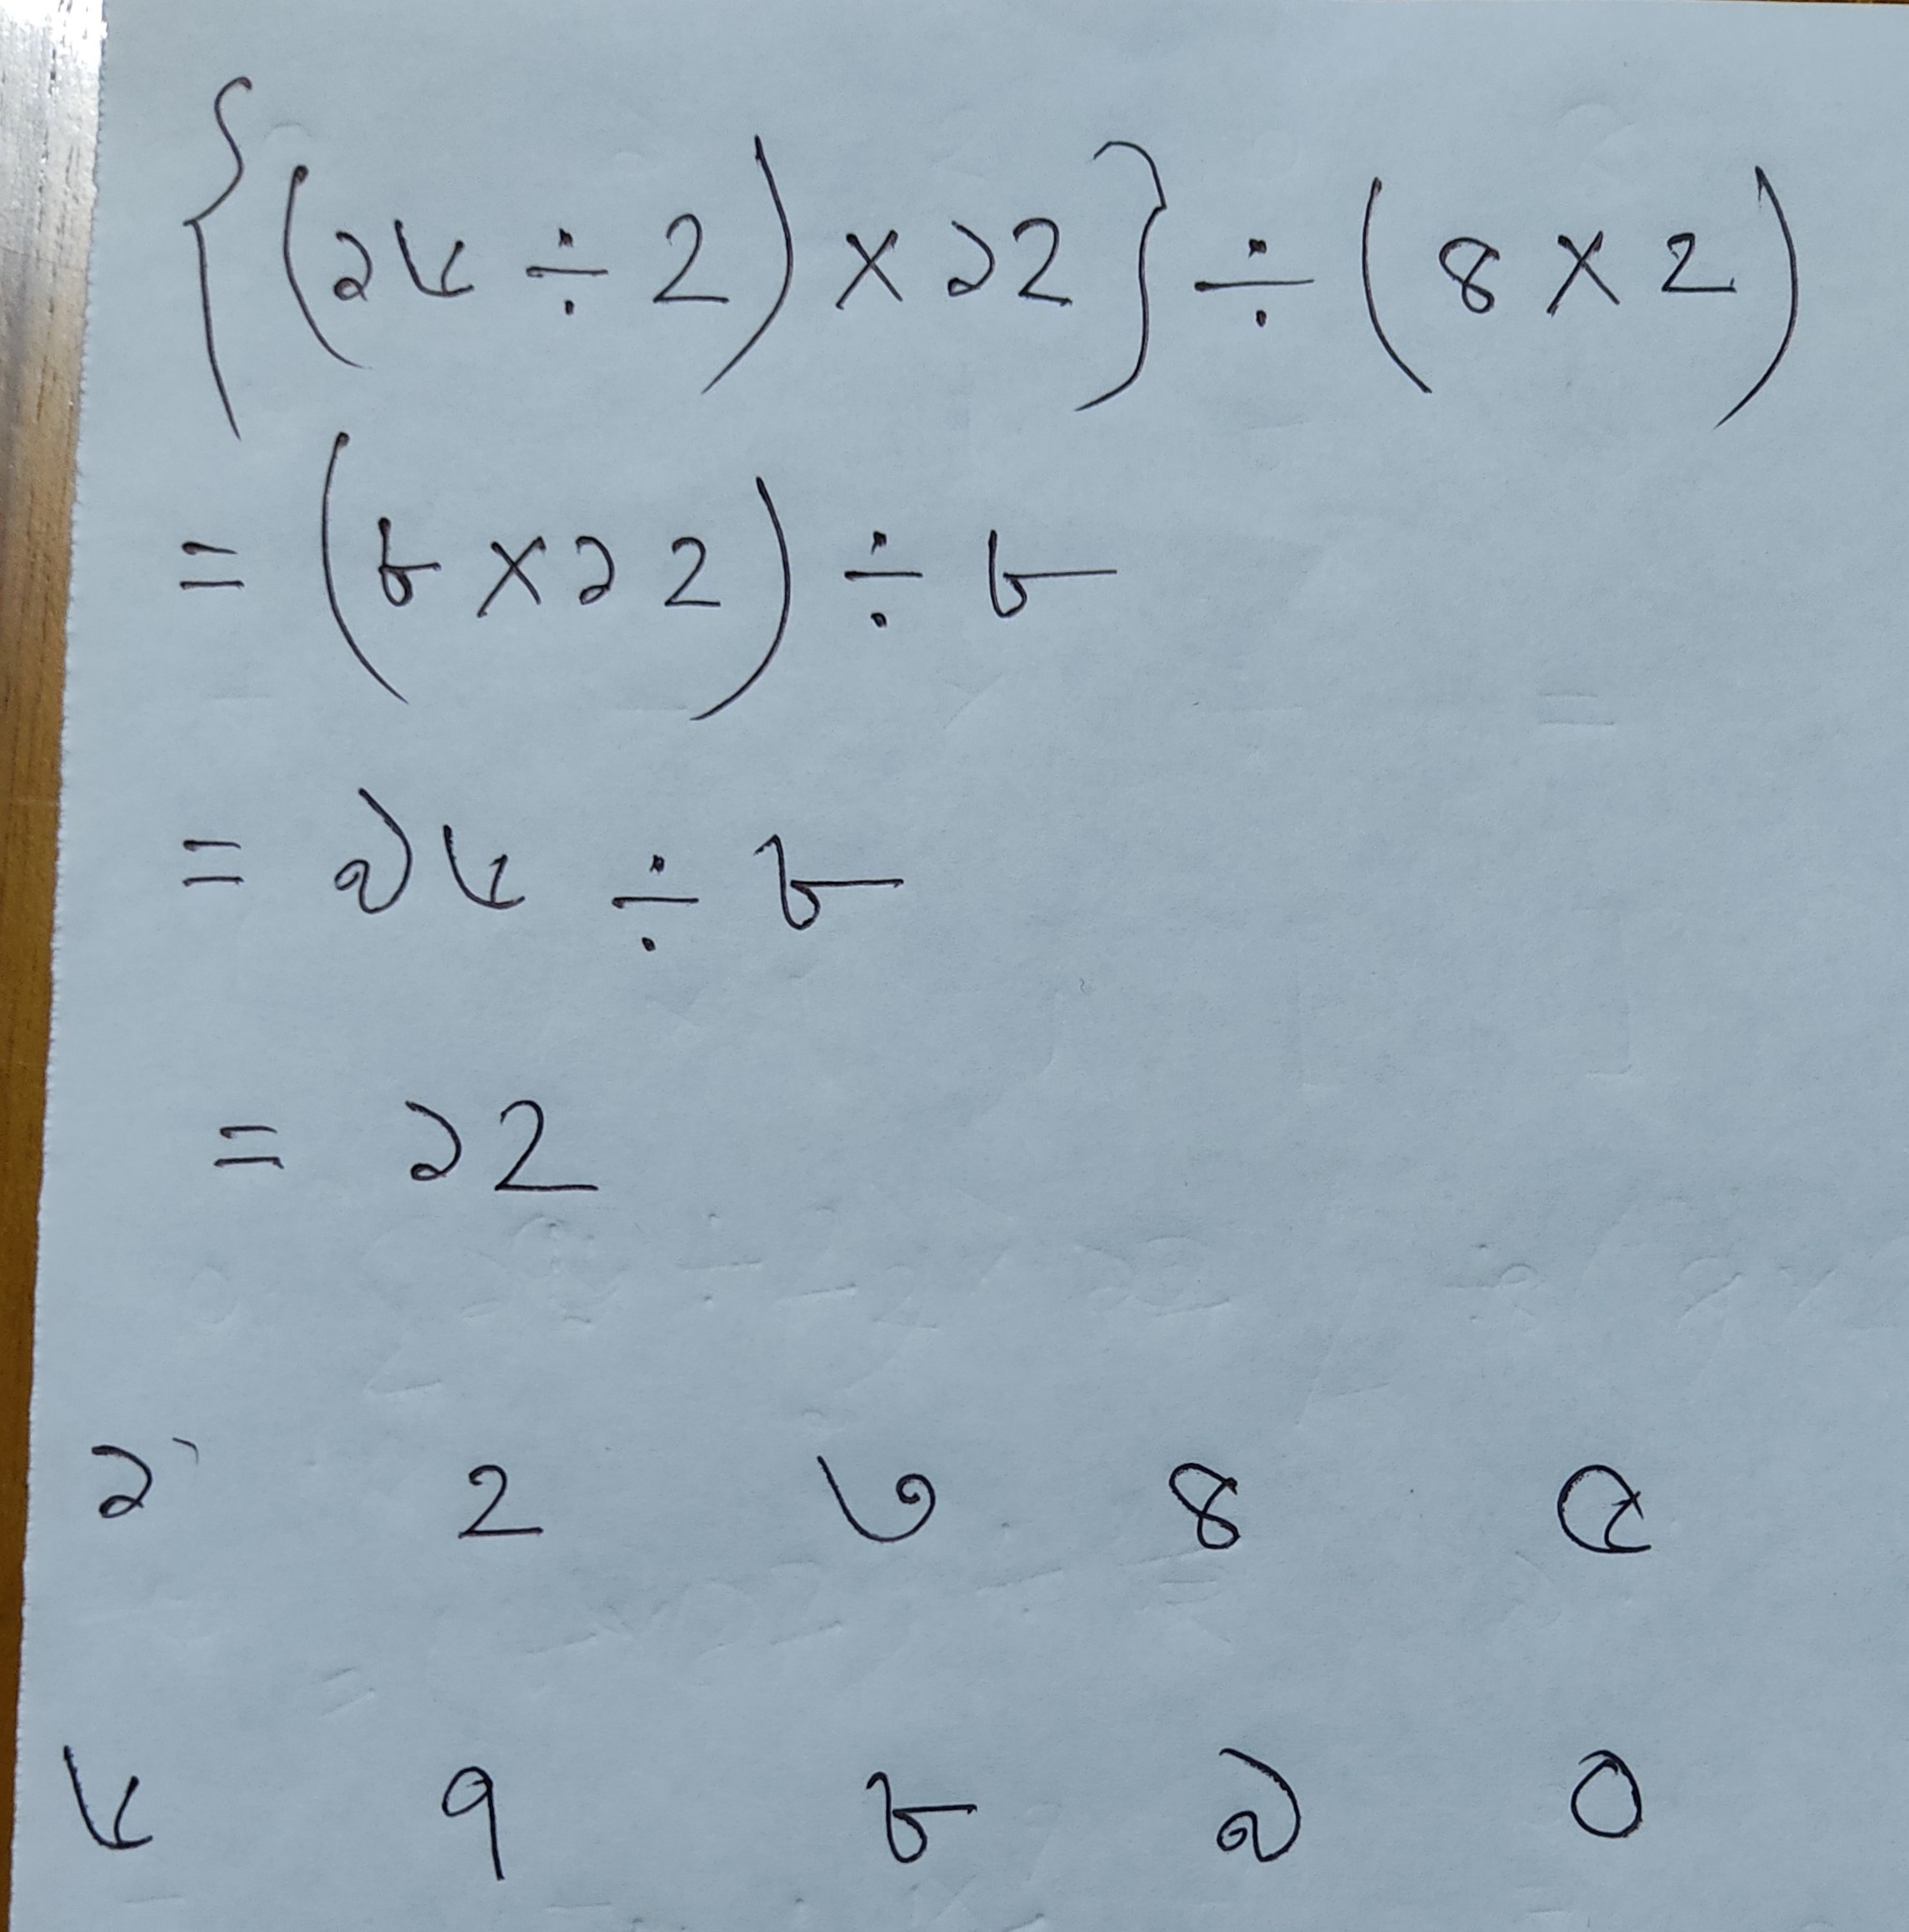 {(১৬ ÷ ২) × ১২} ÷ (৪ × ২)
= (৮ × ১২) ÷ ৮
= ৯৬ ÷ ৮
= ১২
১ ২ ৩ ৪ ৫
৬ ৭ ৮ ৯ ০